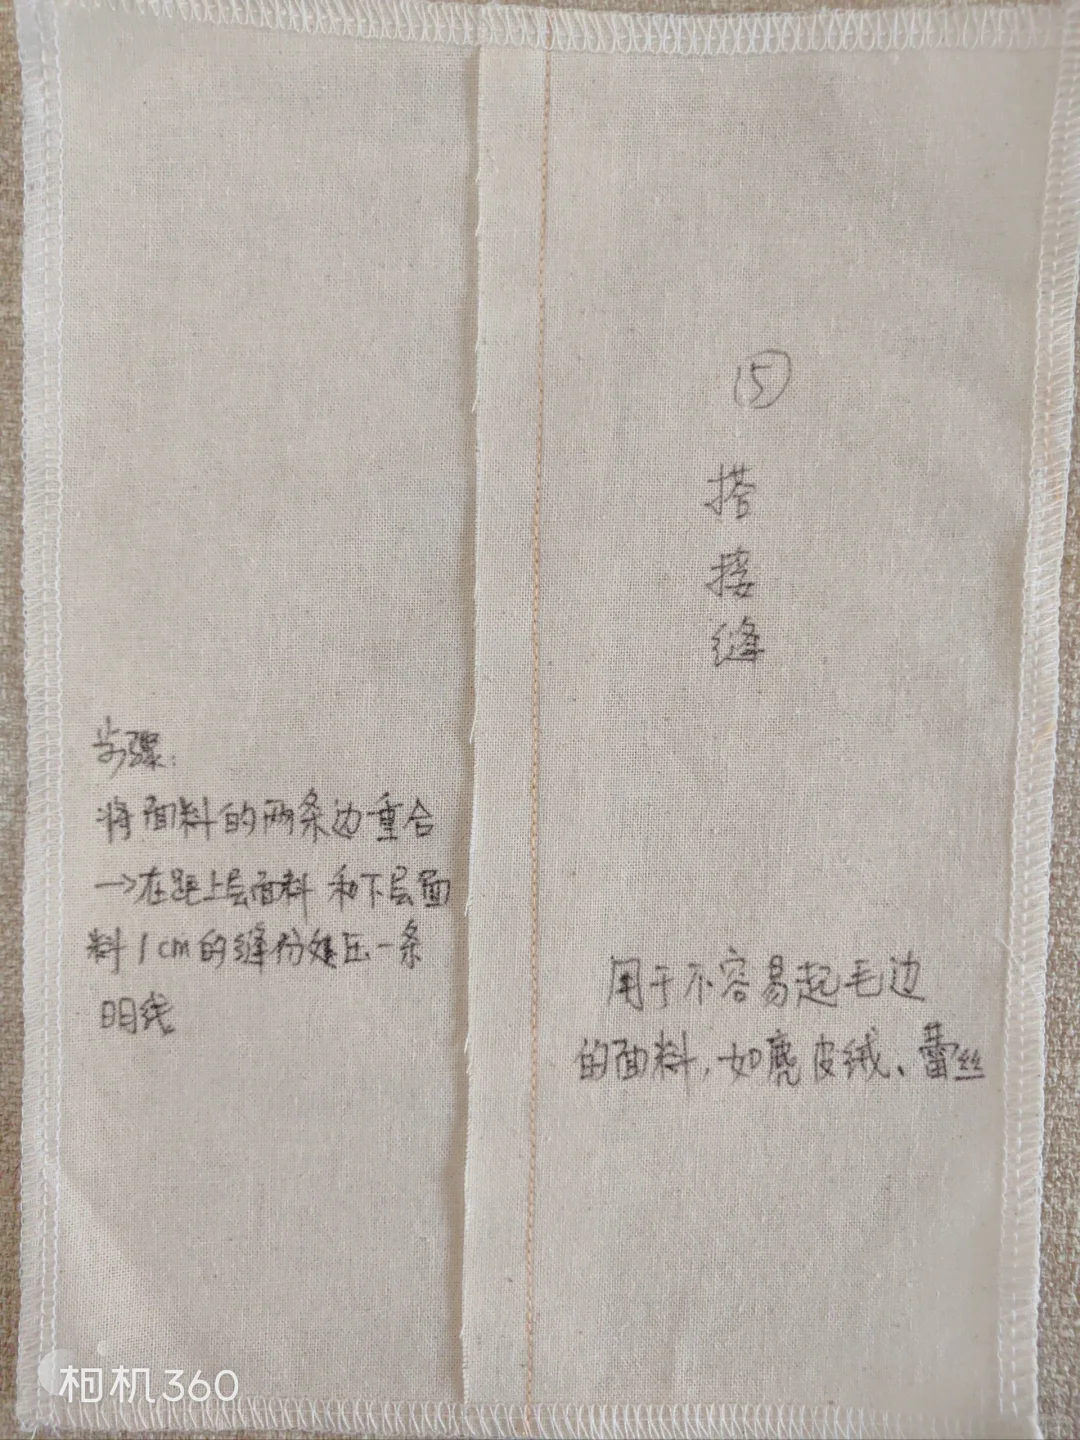 ⑤
搭
接
缝
步骤:
将面料的两条边重合
→在距上层面料和下层面
料1cm的缝份处压一条
明线
用于不容易起毛边
的面料,如麂皮绒、蕾丝
相机360